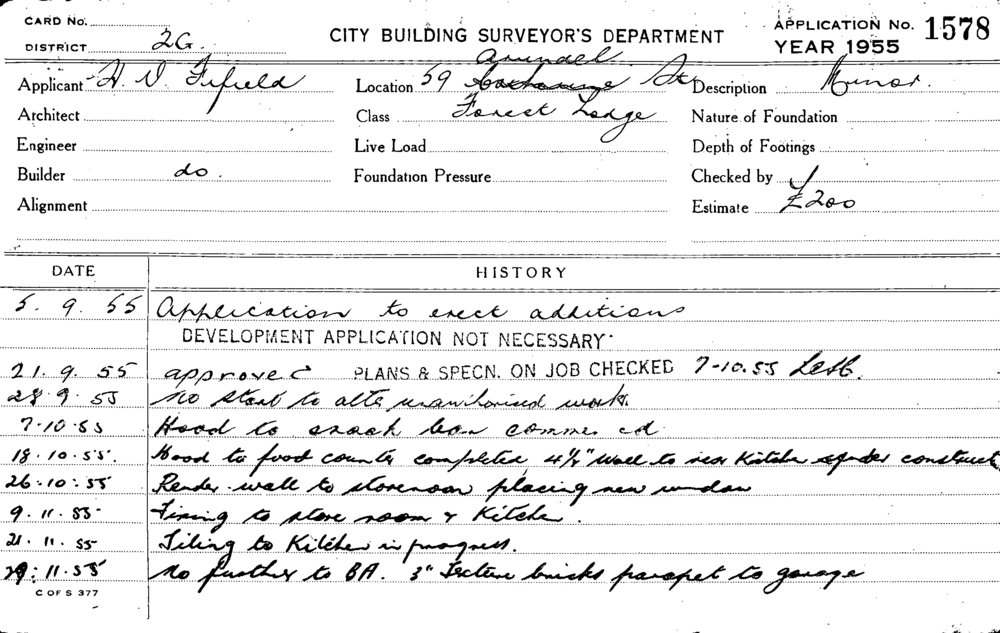 CARD No.
DISTRICT 2G.
CITY BUILDING SURVEYOR'S DEPARTMENT
APPLICATION No. 1578
YEAR 1955
Applicant H. V. Fifield
Location 59 Arundel St
Description Minor.
Architect
Class Forest Lodge
Nature of Foundation
Engineer
Live Load
Depth of Footings
Builder do.
Foundation Pressure
Checked by
Alignment
Estimate £200
DATE HISTORY
5. 9. 55 Application to erect additions
DEVELOPMENT APPLICATION NOT NECESSARY
21. 9. 55 approved PLANS & SPECN. ON JOB CHECKED 7-10.55
28.9.55 No start to alts unauthorised work.
7.10.55 Hood to snack bar commenced
18.10.55. Hood to food counter completed 4½" wall to rear Kitchen under construct
26.10.55 Render wall to storeroom placing new window
9.11.55 Fixing to store room & Kitchen.
21.11.55 Tiling to Kitchen in progress.
29.11.55 No further to BA. 3" Texture bricks parapet to garage
C OF S 377